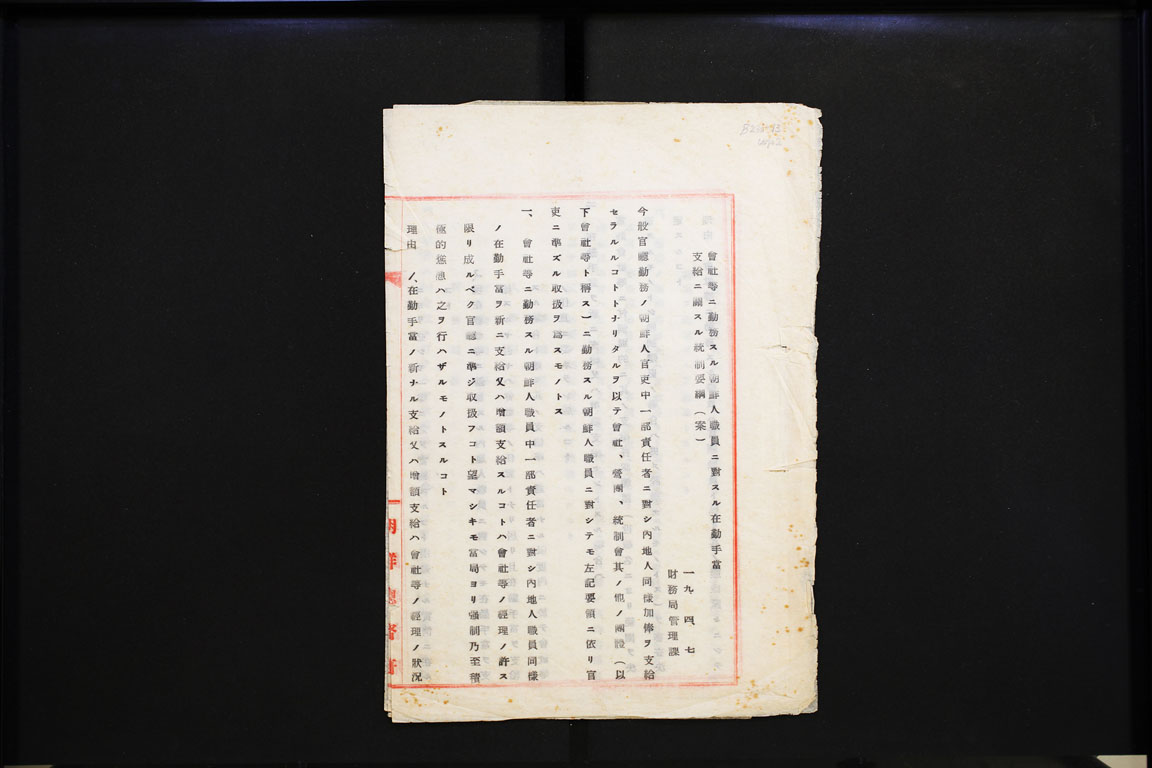 會社等ニ勤務スル朝鮮人職員ニ對スル在勤手當
支給ニ關スル統制要綱（案）
一九、四、七
財務局管理課
今般官廳勤務ノ朝鮮人官吏中一部責任者ニ對シ內地人同樣加俸ヲ支給
セラルルコトトナリタルヲ以テ會社、營團、統制會其ノ他ノ團體（以
下會社等ト稱ス）ニ勤務スル朝鮮人職員ニ對シテモ左記要領ニ依リ官
吏ニ準ズル取扱ヲ爲スモノトス
一、會社等ニ勤務スル朝鮮人職員中一部責任者ニ對シ內地人職員同樣
ノ在勤手當ヲ新ニ支給又ハ增額支給スルコトハ會社等ノ經理ノ許ス
限リ成ルベク官廳ニ準ジ取扱フコト望マシキモ當局ヨリ强制乃至積
極的慫慂ハ之ヲ行ハザルモノトスルコト
理由 ノ、在勤手當ノ新ナル支給又ハ增額支給ハ會社等ノ經理ノ狀況
朝鮮總督府